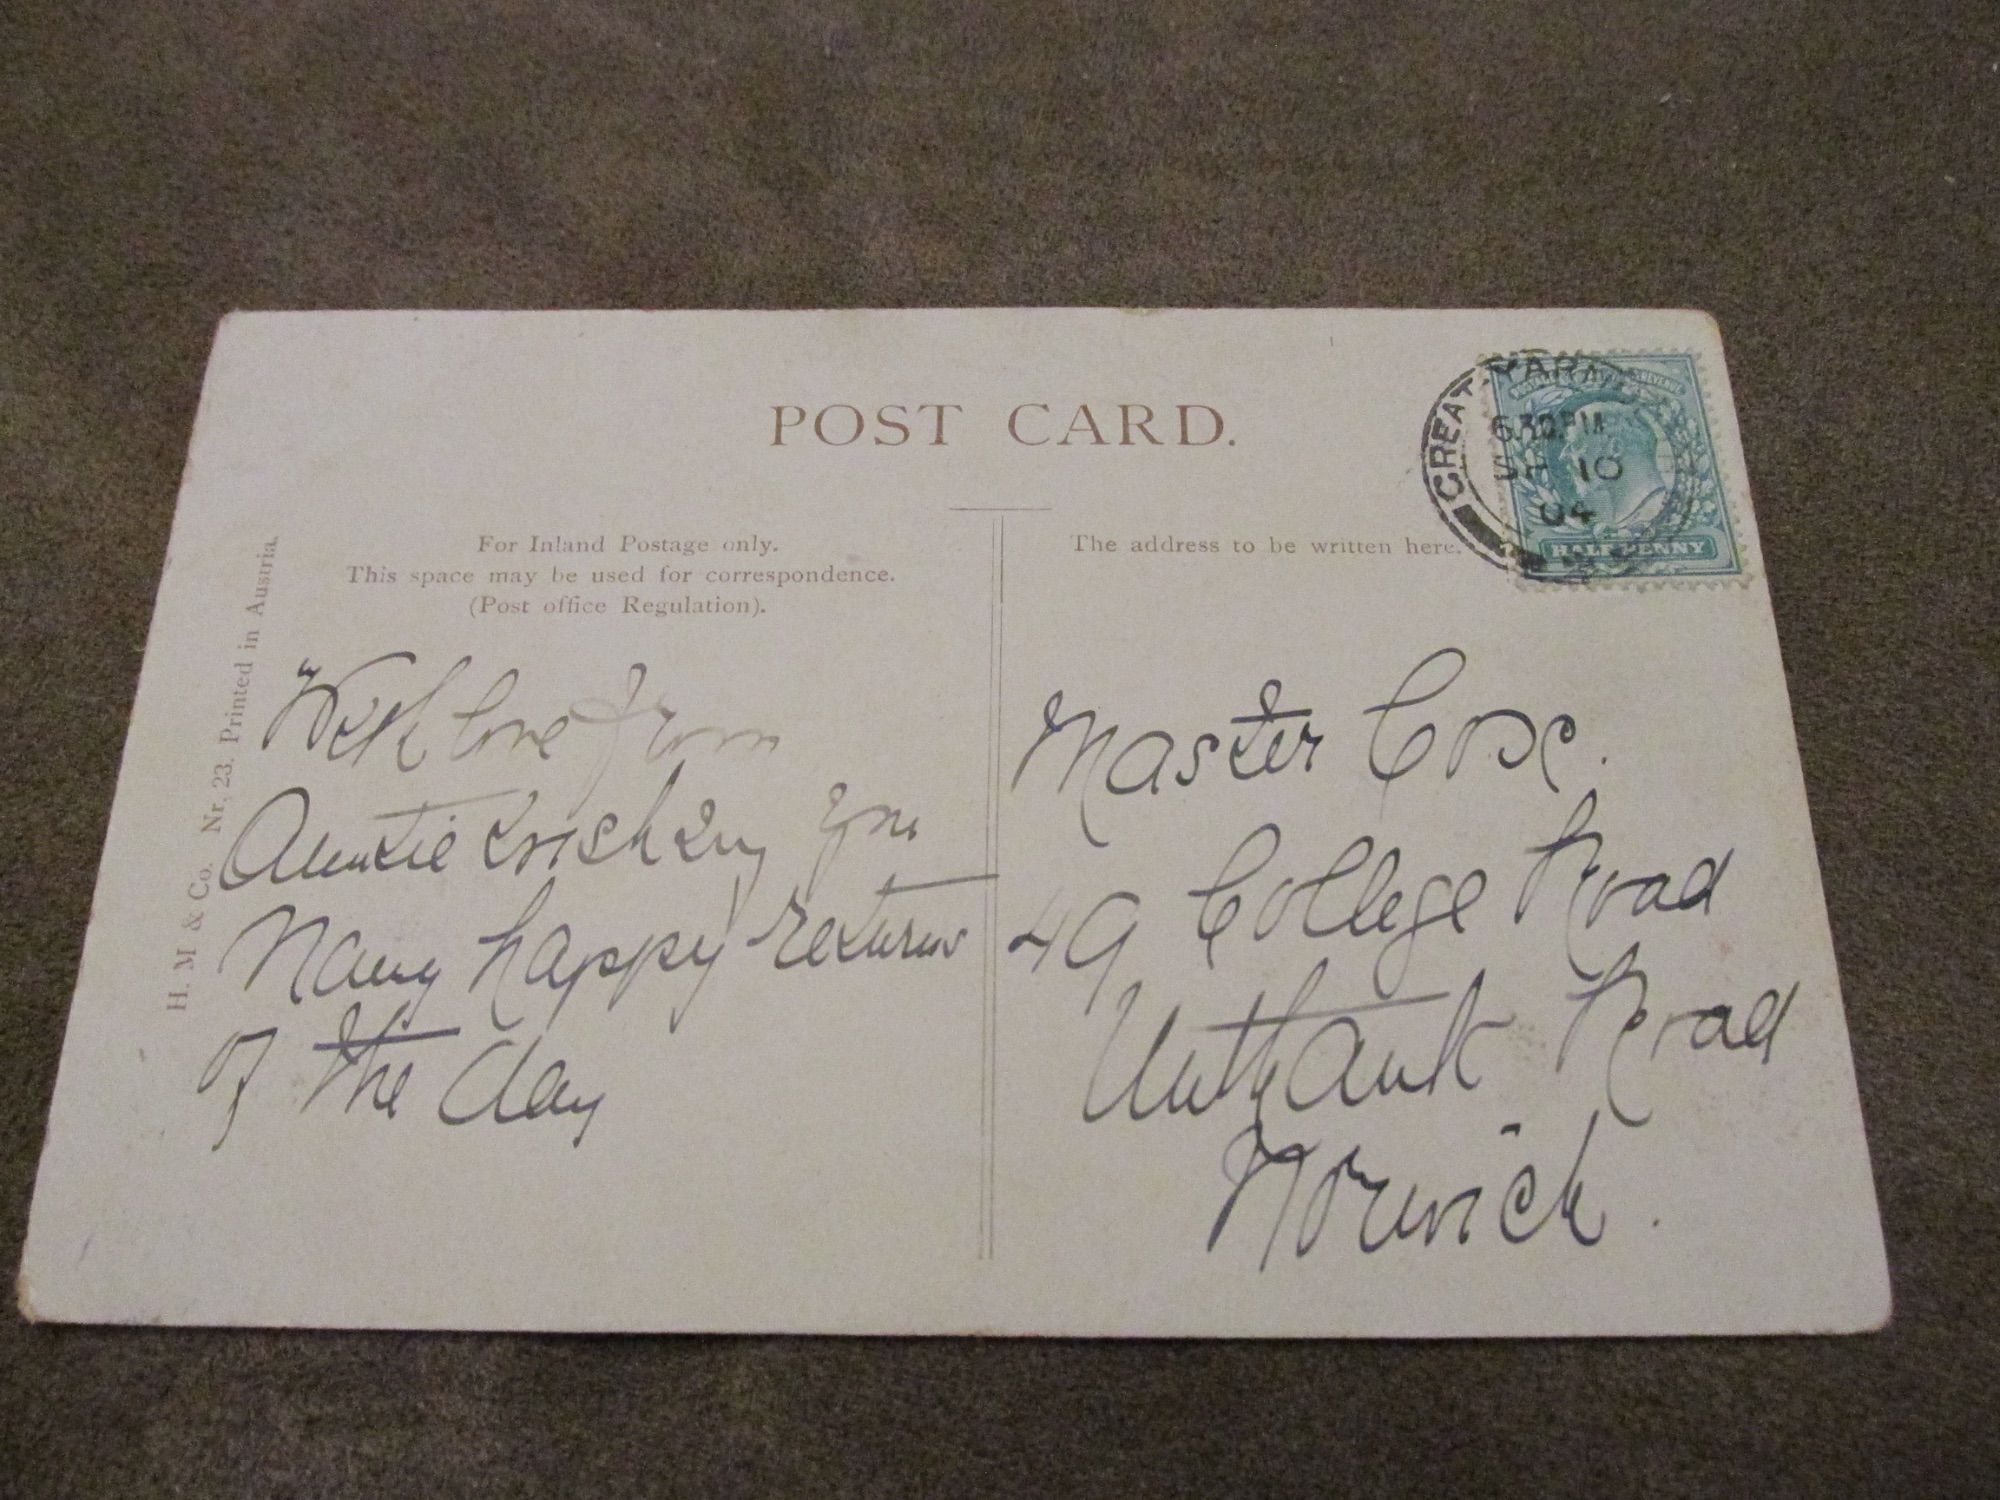 POST CARD.
For Inland Postage only.
This space may be used for correspondence.
(Post office Regulation).
The address to be written here.
H. M & Co. Nr. 23. Printed in Austria.
GREAT YARM
6.30 PM
SP 10
04
HALF PENNY
With love from
Auntie wishing you
Many happy returns
of the day
Master Cose.
49 College Road
Unthank Road
Norwich.